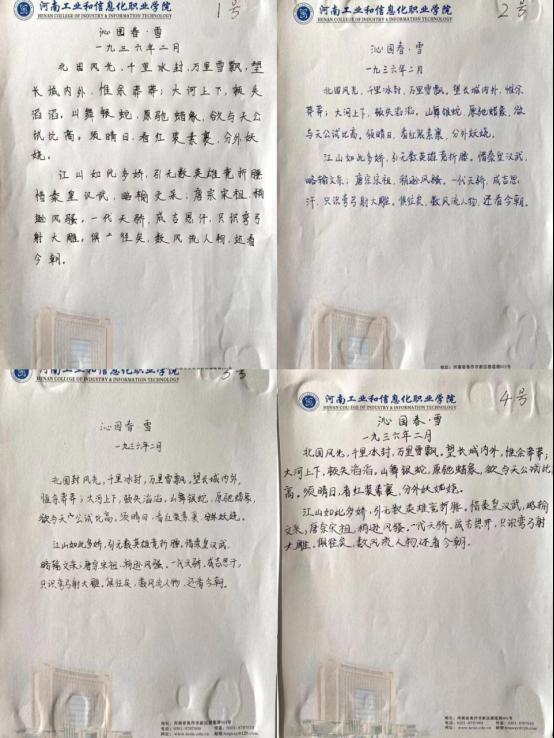 河南工业和信息化职业学院
HENAN COLLEGE OF INDUSTRY & INFORMATION TECHNOLOGY
1号
沁园春·雪
一九三六年二月
北国风光,千里冰封,万里雪飘,望
长城内外,惟余莽莽;大河上下,顿失
滔滔,山舞银蛇,原驰蜡象,欲与天公
试比高。须晴日,看红装素裹,分外妖
娆。
江山如此多娇,引无数英雄竞折腰
惜秦皇汉武,略输文采;唐宗宋祖,稍
逊风骚。一代天骄,成吉思汗,只识弯弓
射大雕。俱往矣,数风流人物,还看
今朝。
河南工业和信息化职业学院
HENAN COLLEGE OF INDUSTRY & INFORMATION TECHNOLOGY
2号
沁园春·雪
一九三六年二月
北国风光,千里冰封,万里雪飘,望长城内外,惟余
莽莽;大河上下,顿失滔滔。山舞银蛇,原驰蜡象,欲
与天公试比高。须晴日,看红装素裹,分外妖娆。
江山如此多娇,引无数英雄竞折腰。惜秦皇汉武,
略输文采;唐宗宋祖,稍逊风骚。一代天骄,成吉思
汗,只识弯弓射大雕。俱往矣,数风流人物,还看今朝。
河南工业和信息化职业学院
HENAN COLLEGE OF INDUSTRY & INFORMATION TECHNOLOGY
3号
沁园春 雪
一九三六年二月
北国封风光,千里冰封,万里雪飘,望长城内外,
惟余莽莽;大河上下,顿失滔滔,山舞银蛇,原驰蜡象,
欲与天公试比高,须晴日,看红装素裹,分外妖娆。
江山如此多娇,引无数英雄竞折腰,惜秦皇汉武,
略输文采;唐宗宋祖,稍逊风骚。一代天骄,成吉思汗,
只识弯弓射大雕。俱往矣,数风流人物,还看今朝。
河南工业和信息化职业学院
HENAN COLLEGE OF INDUSTRY & INFORMATION TECHNOLOGY
4号
沁园春·雪
一九三六年二月
北国风光,千里冰封,万里雪飘。望长城内外,惟余莽莽;
大河上下,顿失滔滔。山舞银蛇,原驰蜡象,欲与天公试比
高。须晴日,看红装素裹,分外妖娆。
江山如此多娇,引无数英雄竞折腰。惜秦皇汉武,略输
文采;唐宗宋祖,稍逊风骚。一代天骄,成吉思汗,只识弯弓射
大雕。俱往矣,数风流人物,还看今朝。